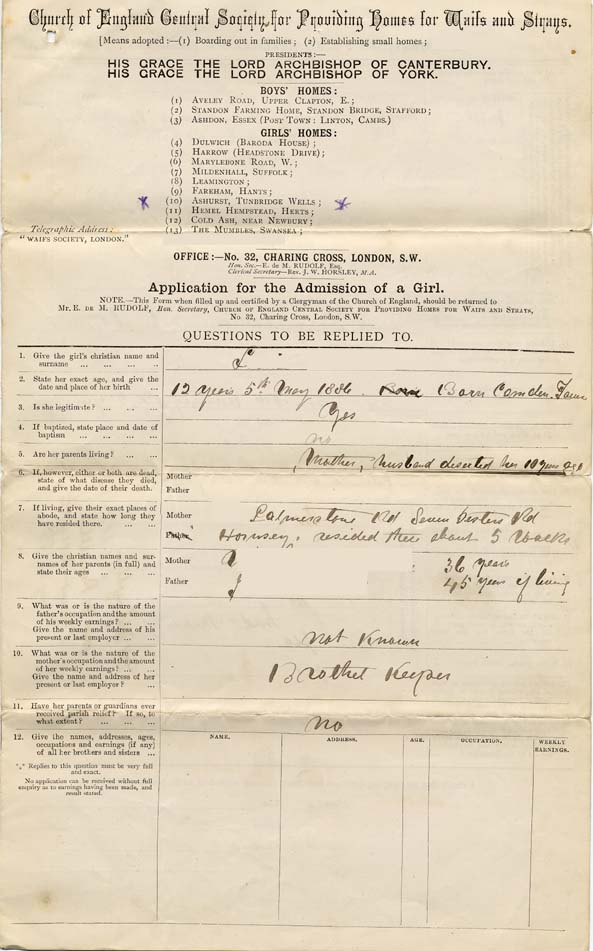 Church of England Central Society for Providing Homes for Waifs and Strays.
[Means adopted:—(1) Boarding out in families; (2) Establishing small homes;
PRESIDENTS:—
HIS GRACE THE LORD ARCHBISHOP OF CANTERBURY.
HIS GRACE THE LORD ARCHBISHOP OF YORK.
BOYS' HOMES:
(1) AVELEY ROAD, UPPER CLAPTON, E.;
(2) STANDON FARMING HOME, STANDON BRIDGE, STAFFORD;
(3) ASHDON, ESSEX (POST TOWN: LINTON, CAMBS.)
GIRLS' HOMES:
(4) DULWICH (BARODA HOUSE);
(5) HARROW (HEADSTONE DRIVE);
(6) MARYLEBONE ROAD, W.;
(7) MILDENHALL, SUFFOLK;
(8) LEAMINGTON;
(9) FAREHAM, HANTS;
(10) ASHURST, TUNBRIDGE WELLS;
(11) HEMEL HEMPSTEAD, HERTS;
(12) COLD ASH, NEAR NEWBURY;
(13) THE MUMBLES, SWANSEA;
Telegraphic Address:
"WAIFS SOCIETY, LONDON."
OFFICE:—No. 32, CHARING CROSS, LONDON, S.W.
Hon. Sec.—E. de M. RUDOLF, Esq.
Clerical Secretary—Rev. J. W. HORSLEY, M.A.
Application for the Admission of a Girl.
NOTE.—This Form when filled up and certified by a Clergyman of the Church of England, should be returned to
Mr. E. DE M. RUDOLF, Hon. Secretary, CHURCH OF ENGLAND CENTRAL SOCIETY FOR PROVIDING HOMES FOR WAIFS AND STRAYS,
No 32, Charing Cross, London, S.W.
QUESTIONS TO BE REPLIED TO.
1. Give the girl's christian name and
surname ... ... ... ..
2. State her exact age, and give the
date and place of her birth ...
12 years 5th May 1886. Born Born Camden Town
3. Is she legitimate? ... ... ...
Yes
4. If baptized, state place and date of
baptism ... ... ... ...
no
5. Are her parents living? ... ...
Mother, husband deserted her 10 years ago
6. If, however, either or both are dead,
state of what disease they died,
and give the date of their death.
Mother
Father
7. If living, give their exact places of
abode, and state how long they
have resided there. ... ...
Mother Palmerstone Rd Seven Sisters Rd
Father Hornsey, resided there about 5 weeks
8. Give the christian names and sur-
names of her parents (in full) and
state their ages ... ... ...
Mother 36 years
Father 45 years if living
9. What was or is the nature of the
father's occupation and the amount
of his weekly earnings? ... ...
Give the name and address of his
present or last employer ... ...
not Known
10. What was or is the nature of the
mother's occupation and the amount
of her weekly earnings? ... ...
Give the name and address of her
present or last employer? ...
Brothel Keeper
11. Have her parents or guardians ever
received parish relief? If so, to
what extent? ... ... ...
no
12. Give the names, addresses, ages,
occupations and earnings (if any)
of all her brothers and sisters ...
*** Replies to this question must be very full
and exact.
No application can be received without full
enquiry as to earnings having been made, and
result stated.
NAME. ADDRESS. AGE. OCCUPATION. WEEKLY
EARNINGS.